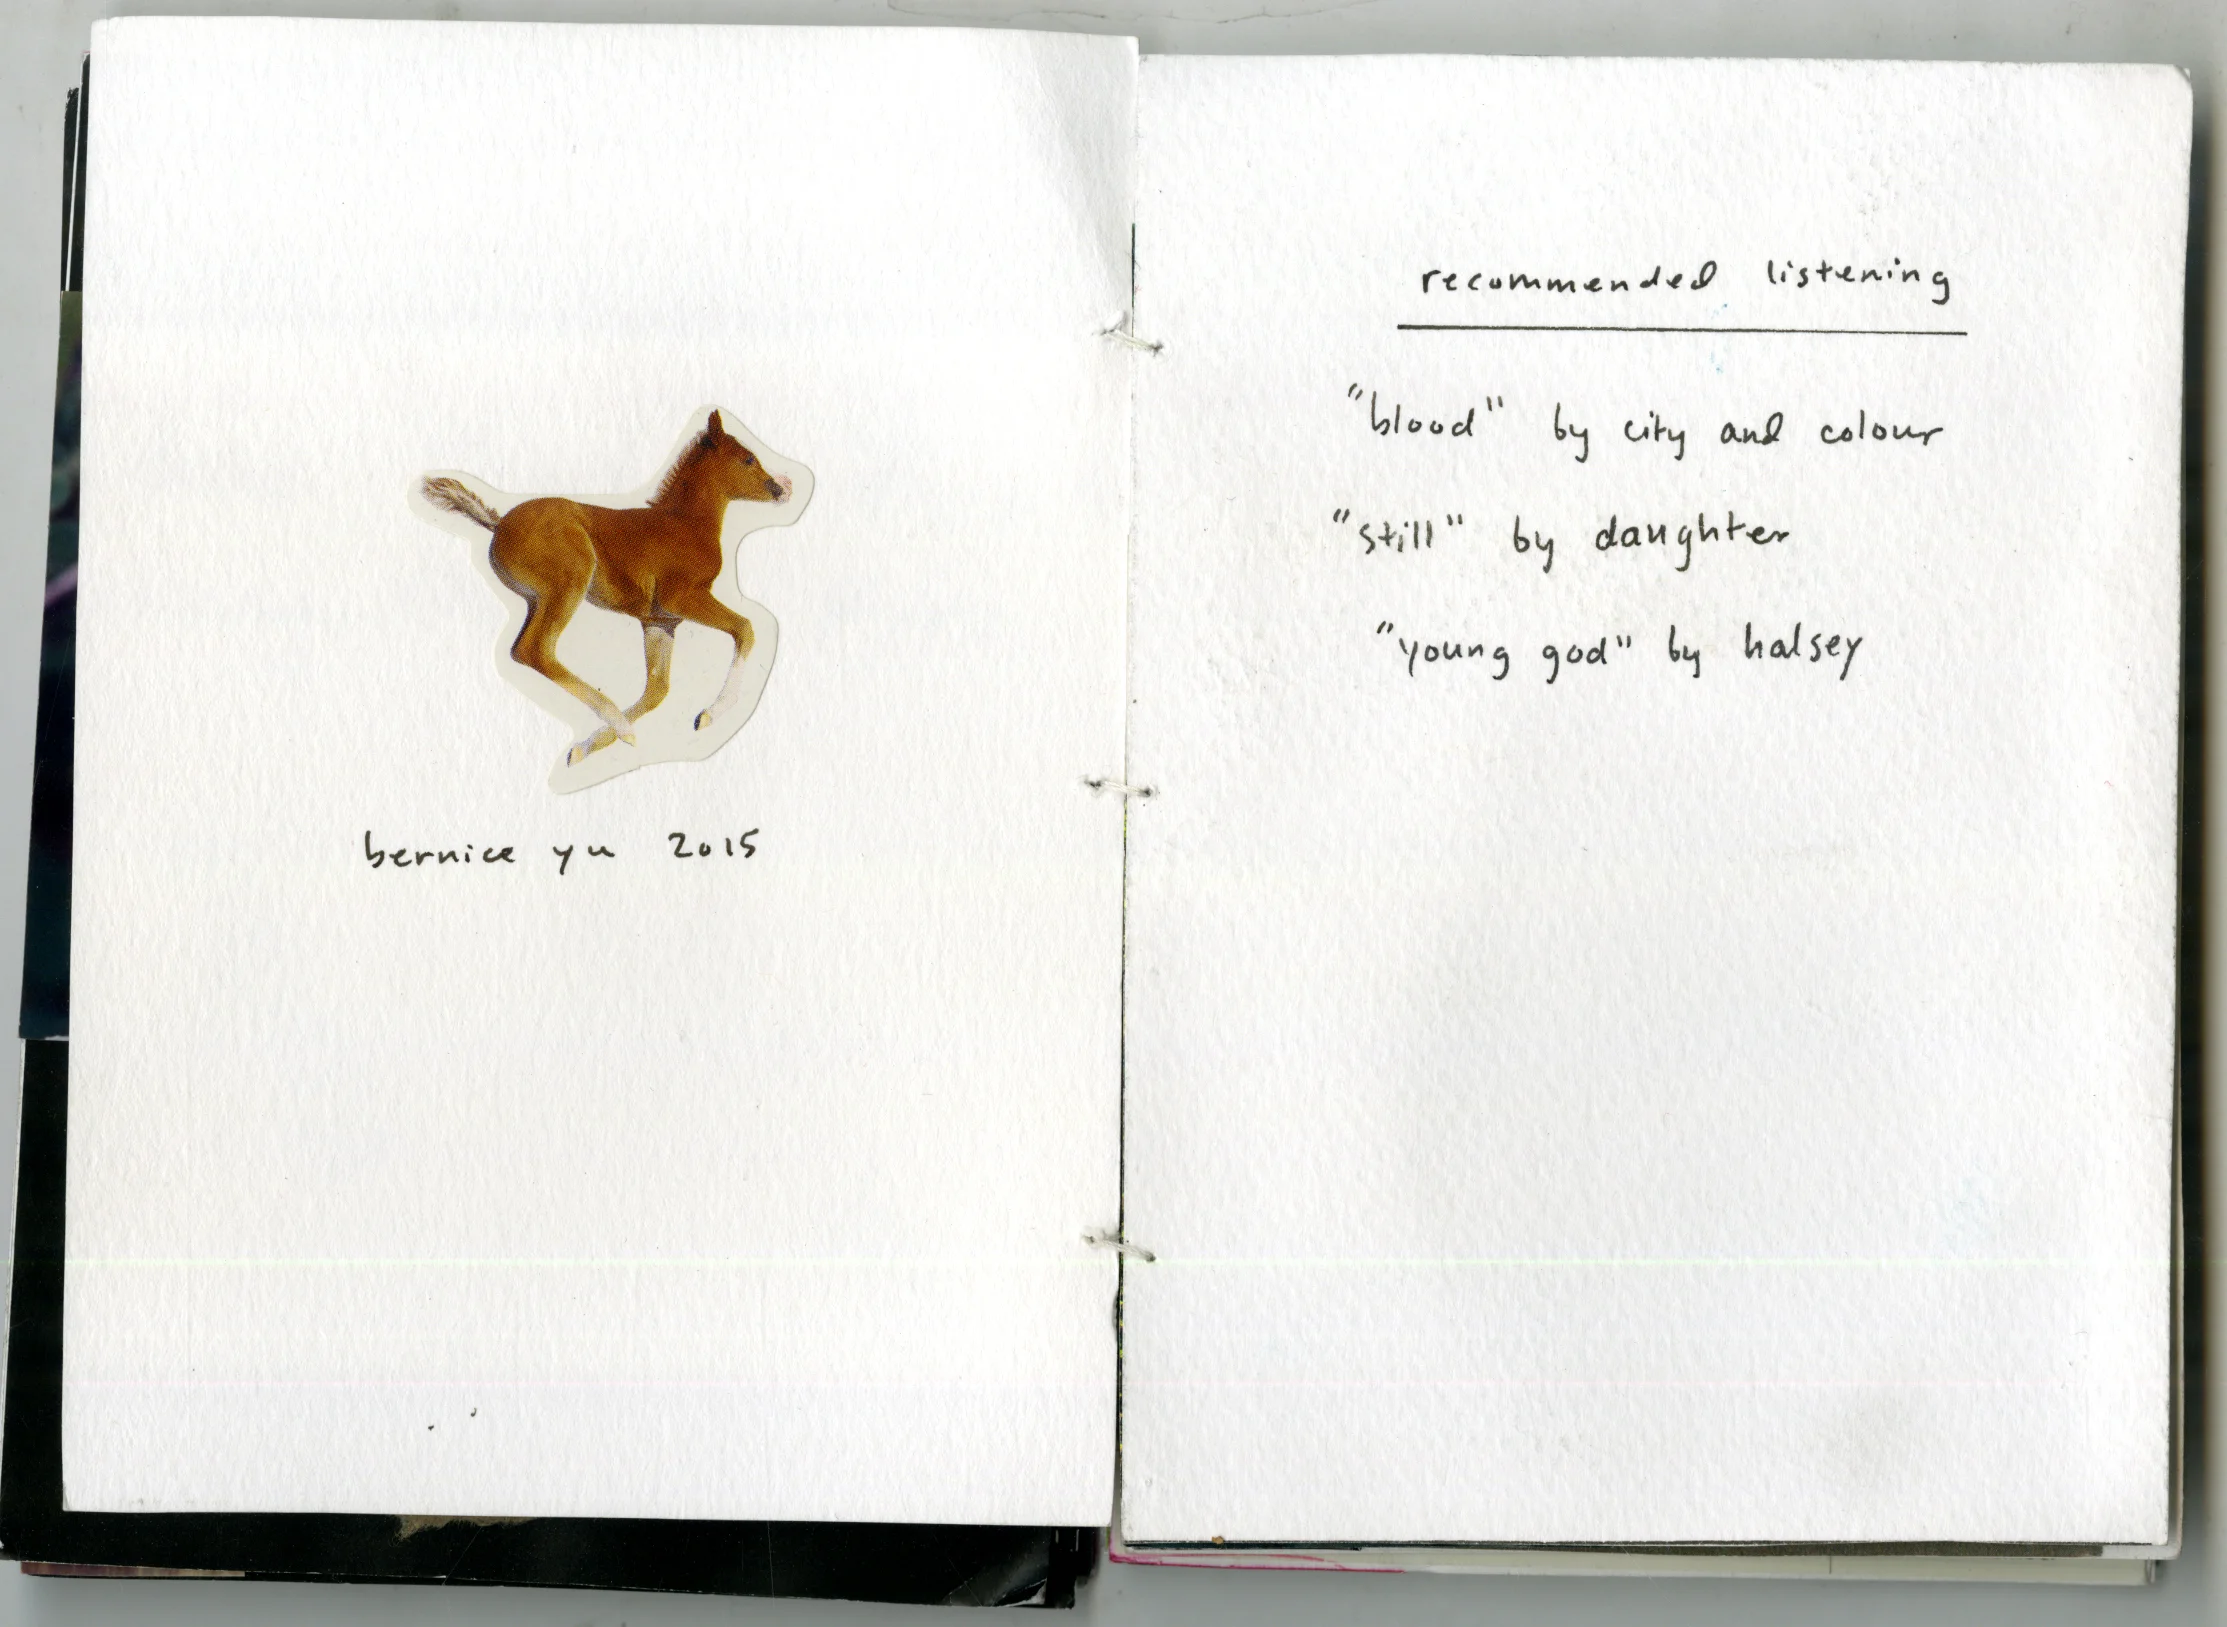 bernice yu 2015
recommended listening
"blood" by city and colour
"still" by daughter
"young god" by halsey